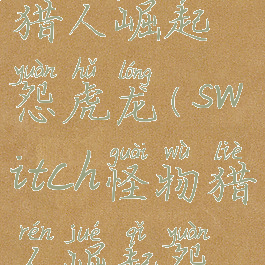 猎人崛起
yuàn hǔ lóng
怨虎龙(sw
guài wù liè
itch怪物猎
rén jué qǐ yuàn
人崛起怨